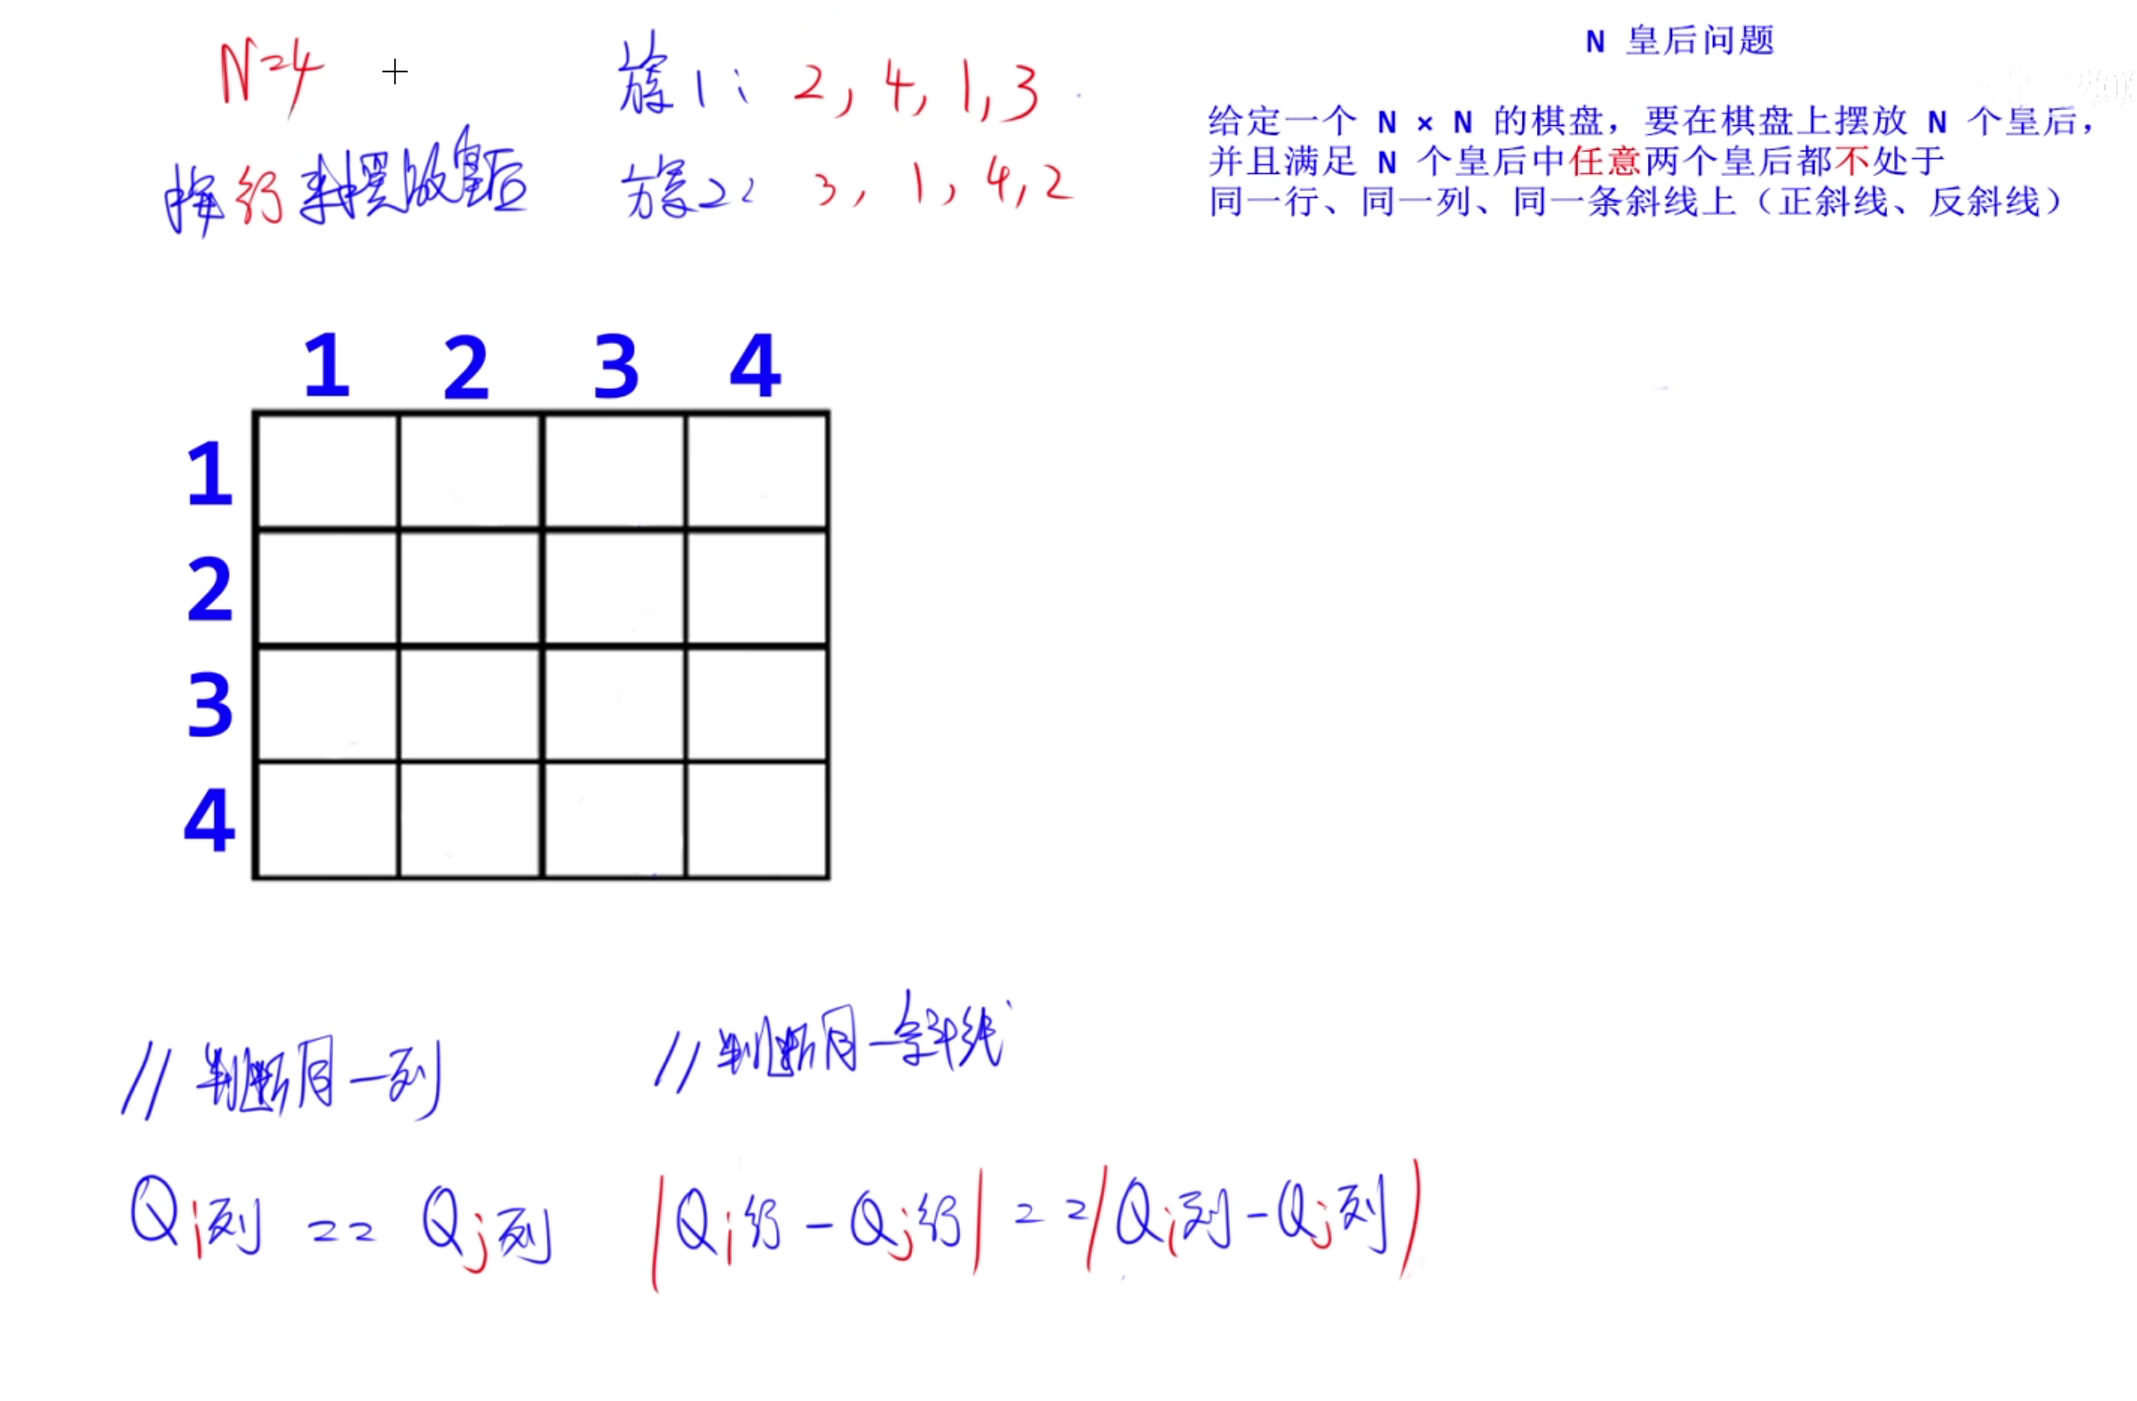 N=4
按行来摆放皇后
方案1: 2, 4, 1, 3
方案2: 3, 1, 4, 2
N 皇后问题
给定一个 N × N 的棋盘，要在棋盘上摆放 N 个皇后，
并且满足 N 个皇后中任意两个皇后都不处于
同一行、同一列、同一条斜线上（正斜线、反斜线）
1 2 3 4
1
2
3
4
// 判断同一列
Qi列 == Qj列
// 判断同一条斜线
|Qi行 - Qj行| == |Qi列 - Qj列|